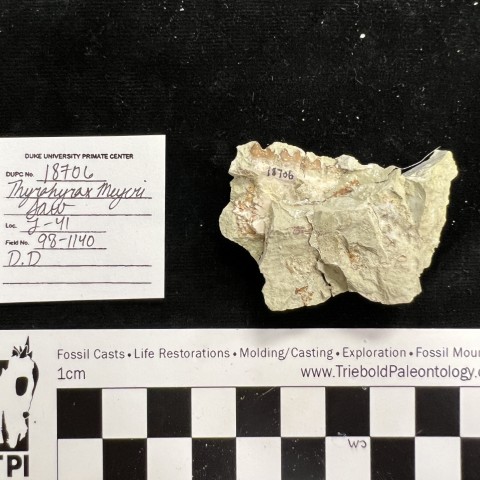 DUKE UNIVERSITY PRIMATE CENTER
DUPC No. 18706
Thyrohyrax Meyeri
Jaw
Loc. L-41
Field No. 98-1140
D.D
18706
Fossil Casts • Life Restorations • Molding/Casting • Exploration • Fossil Mou
1cm www.TrieboldPaleontology.c
CM
TPI